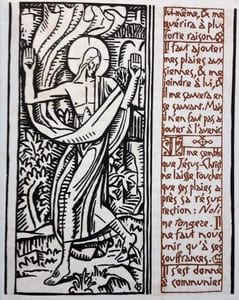 lui-même, & me
guérira à plus
forte raison. &
Il faut ajouter
mes plaies aux
siennes, & me
joindre à lui, &
il me sauvera en
se sauvant. Mais
il n'en faut pas a-
jouter à l'avenir.
Il me semble
que Jésus-Christ
ne laisse toucher
que ses plaies a-
près sa résur-
rection: Noli
me tangere. Il
ne faut nous u-
nir qu'à ses
souffrances. &
Il s'est donné
communier